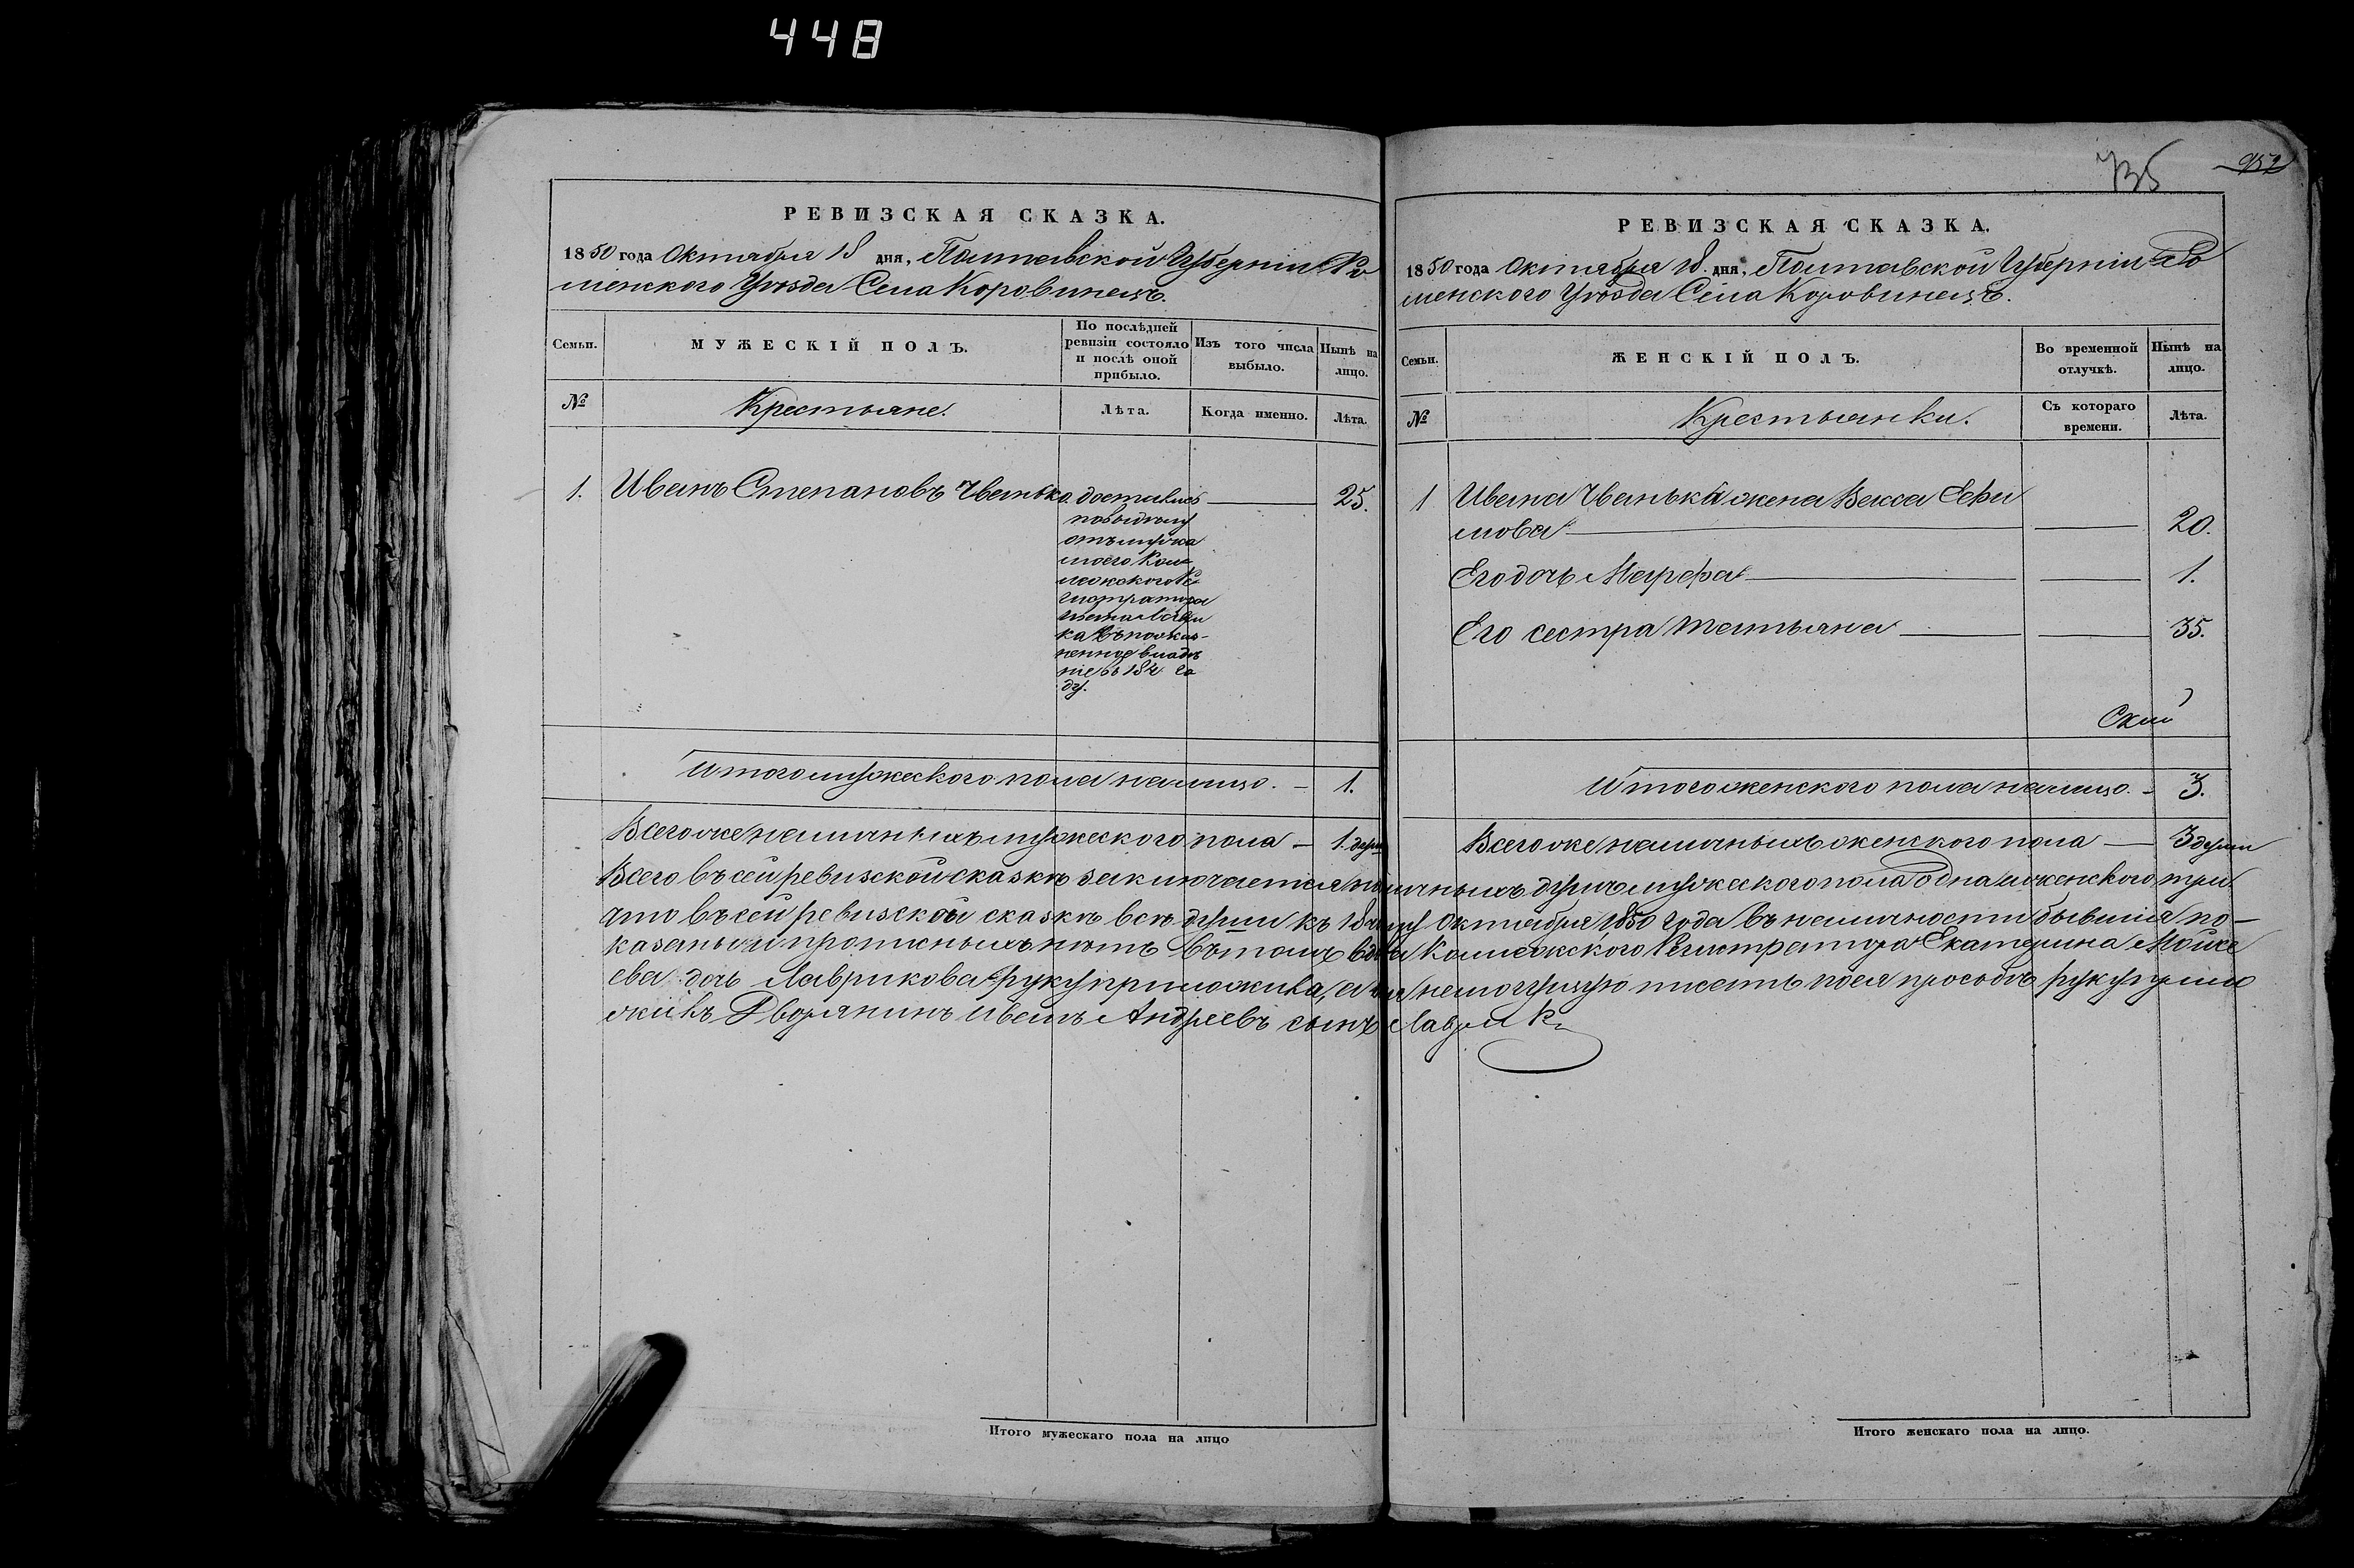 448
РЕВИЗСКАЯ СКАЗКА.
1850 года Октября 18 дня, Полтавской Губерніи Ро
менского Уѣзда Села Коровинецъ.
Семьи.
МУЖЕСКІЙ ПОЛЪ.
По послѣдней ревизіи состояло и послѣ оной прибыло.
Изъ того числа выбыло.
Нынѣ на лицо.
№
Крестьяне.
Лѣта.
Когда именно.
Лѣта.
1. Иванъ Степановъ Чванько 25.
достались
отъ мужа
моего Кол-
лежскаго Ре-
гистратора
Лаври
ка въ пожиз-
ненное владѣ
ніе въ 184 го
ду.
Итого мужеского пола налицо. - 1.
Всего же наличныхъ мужеского пола - 1. душа
РЕВИЗСКАЯ СКАЗКА.
735
952
1850 года Октября 18. дня, Полтавской Губерніи Ро
менского Уѣзда Села Коровинецъ.
Семьи.
ЖЕНСКІЙ ПОЛЪ.
Во временной отлучкѣ.
Нынѣ на лицо.
№
Крестьянки.
Съ котораго времени.
Лѣта.
1 Ивана Чванька жена Васса Ефи
мова 20.
Его дочь Марфа 1.
Его сестра Татьяна 35.
Итого женского пола налицо. - 3.
Всего же наличныхъ женского пола - 3 души
Всего въ сей ревизской сказкѣ заключается наличныхъ душъ мужеского пола одна и женского три.
что въ сей ревизской сказкѣ всѣ души къ 18 числу Октября 1850 года въ наличности бывшія по-
казаны и прописныхъ нѣтъ въ томъ вдова Коллежского Регистратора Екатерина Мойсе
ева дочь Лаврикова руку приложила, а за неграмотную писать по ея просьбѣ руку прило
жилъ Дворянинъ Иванъ Андреевъ сынъ Лаврикъ
Итого мужескаго пола на лицо
Итого женскаго пола на лицо.